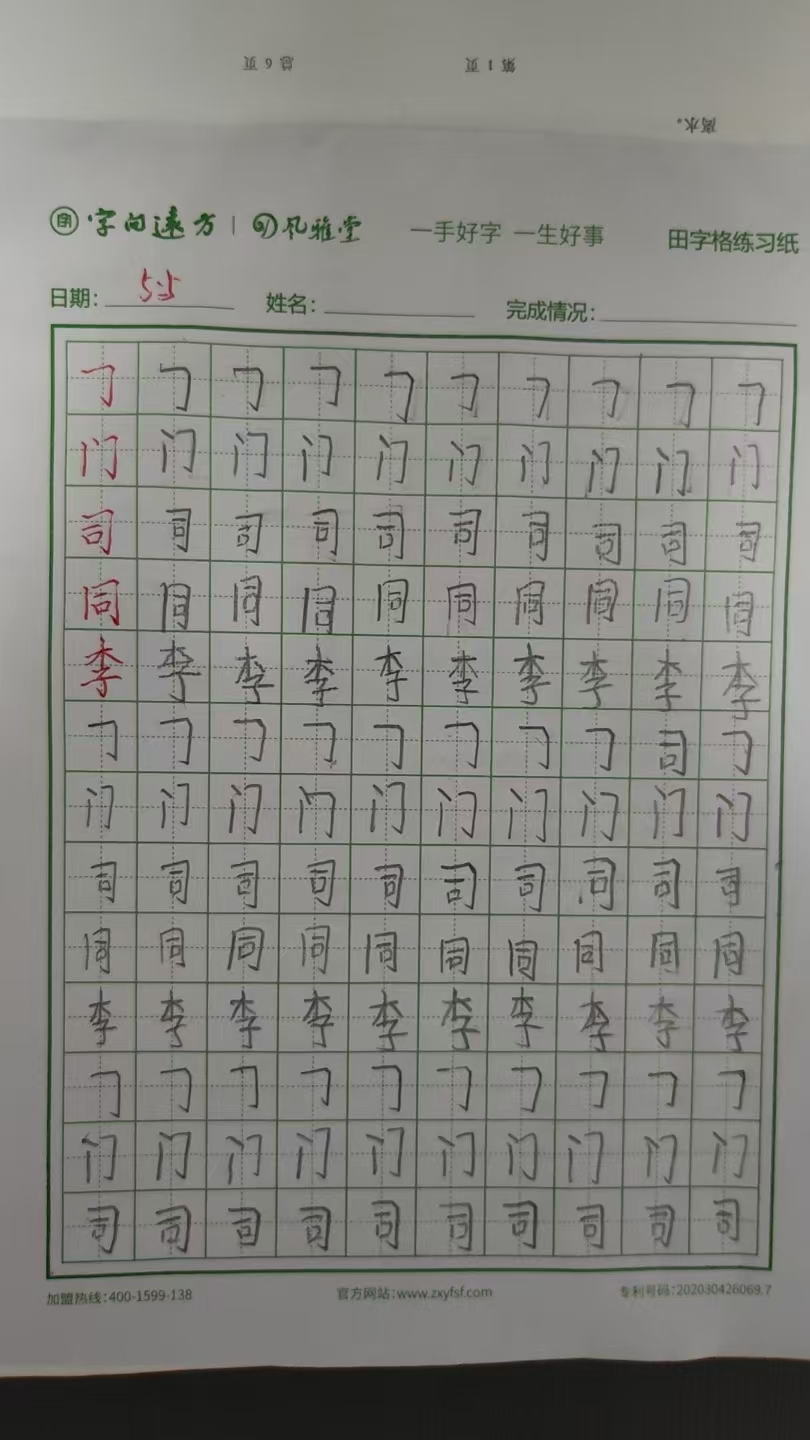 总 6 页 第 1 页
离水。
字 字向远方 | 风雅堂 一手好字 一生好事 田字格练习纸
日期: 5.5 姓名: 完成情况:
㇆ ㇆ ㇆ ㇆ ㇆ ㇆ ㇆ ㇆ ㇆ ㇆
门 门 门 门 门 门 门 门 门 门
司 司 司 司 司 司 司 司 司 司
同 同 同 同 同 同 同 同 同 同
李 李 李 李 李 李 李 李 李 李
㇆ ㇆ ㇆ ㇆ ㇆ ㇆ ㇆ ㇆ 司 ㇆
门 门 门 门 门 门 门 门 门 门
司 司 司 司 司 司 司 司 司 司
同 同 同 同 同 同 同 同 同 同
李 李 李 李 李 李 李 李 李 李
㇆ ㇆ ㇆ ㇆ ㇆ ㇆ ㇆ ㇆ ㇆ ㇆
门 门 门 门 门 门 门 门 门 门
司 司 司 司 司 司 司 司 司 司
加盟热线:400-1599-138 官方网站:www.zxyfsf.com 专利号码:202030426069.7